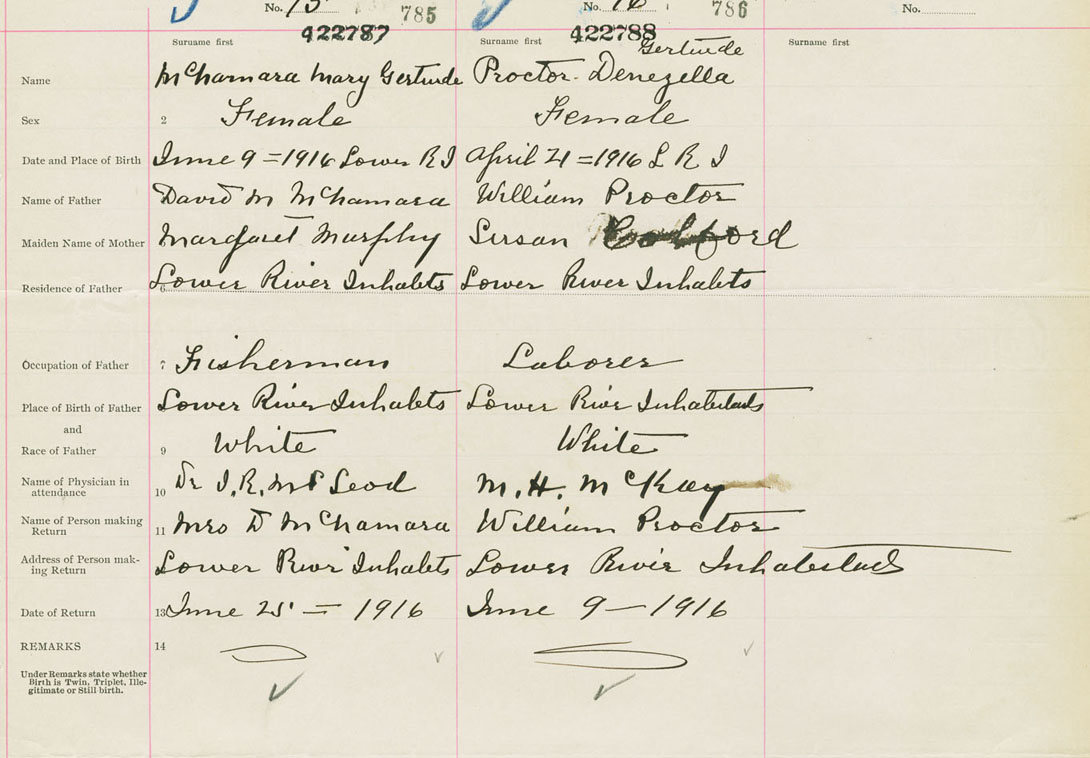 No. 15 785 No. 16 786 No.
422787 422788
Surname first Surname first Surname first
Gertrude
Name McNamara Mary Gertrude Proctor- Denezella
Sex 2 Female Female
Date and Place of Birth June 9 = 1916 Lower R I April 21 = 1916 L R I
Name of Father David M McNamara William Proctor
Maiden Name of Mother Margaret Murphy Susan
Residence of Father 6 Lower River Inhabets Lower River Inhabets
Occupation of Father 7 Fisherman Laborer
Place of Birth of Father Lower River Inhabets Lower River
and
Race of Father 9 White White
Name of Physician in
attendance 10 Dr J. R. McLeod M. H. McKay
Name of Person making
Return 11 Mrs D McNamara William Proctor
Address of Person mak-
ing Return Lower River Inhabets Lower River
Date of Return 13 June 25 = 1916 June 9 — 1916
REMARKS 14
Under Remarks state whether
Birth is Twin, Triplet, Ille-
gitimate or Still birth.